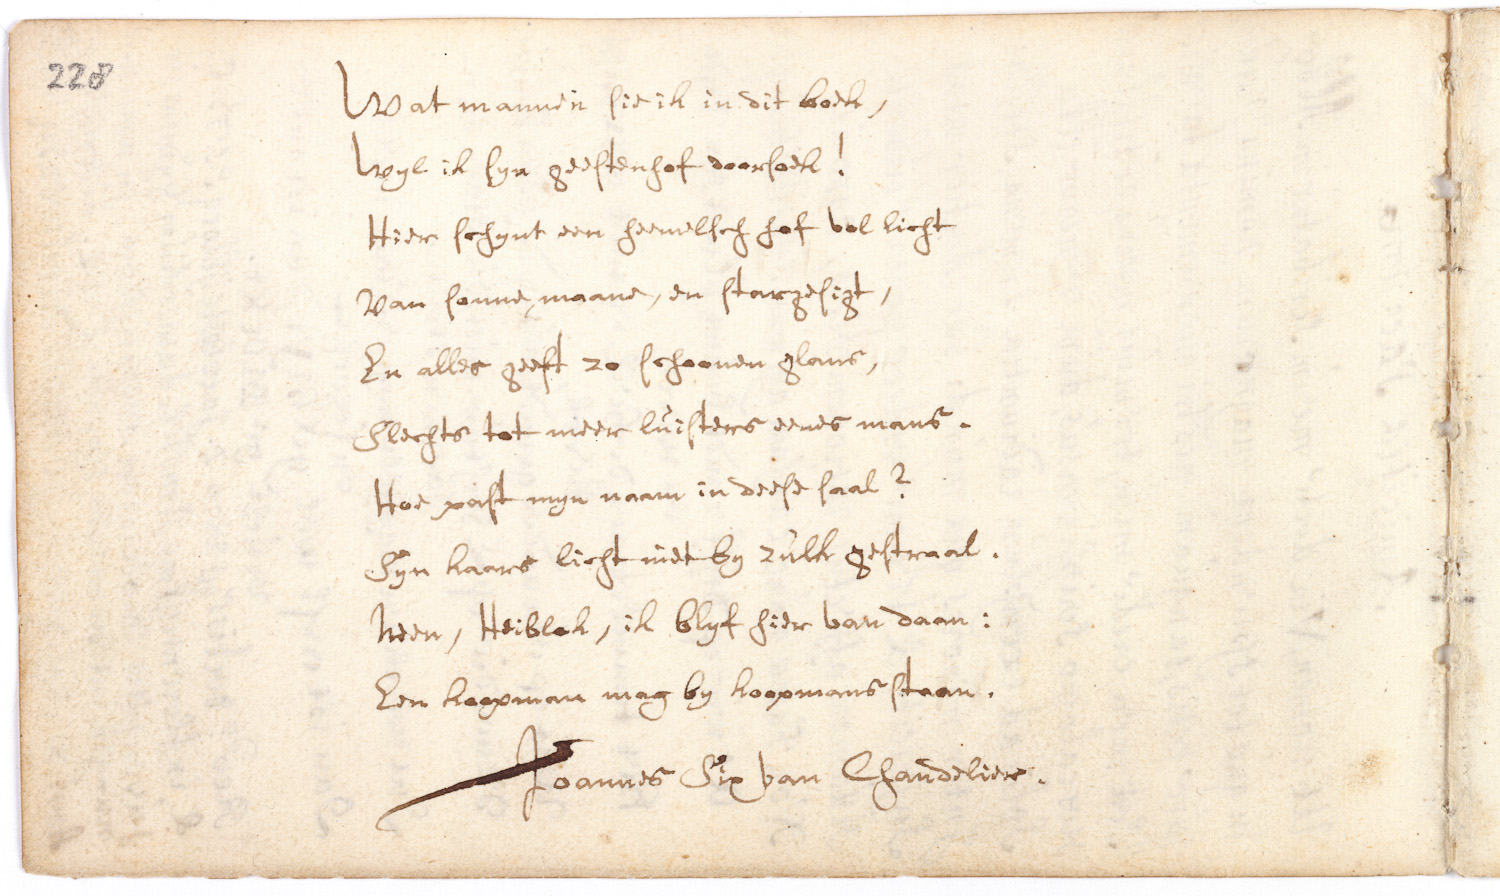 228
Wat mannen sie ik in dit boek,
Wyl ik syn geestenhof doorsoek!
Hier schynt een heemelsch hof vol licht
Van sonne, maane, en stargesigt,
En alles geeft zo schoonen glans,
Slechts tot meer luisters eenes mans.
Hoe past myn naam in deese saal?
Syn kaars licht niet by zulk gestraal.
Neen, Heiblok, ik blyf hier van daan:
Een koopman mag by koopmans staan.
Joannes Six van Chandelier.